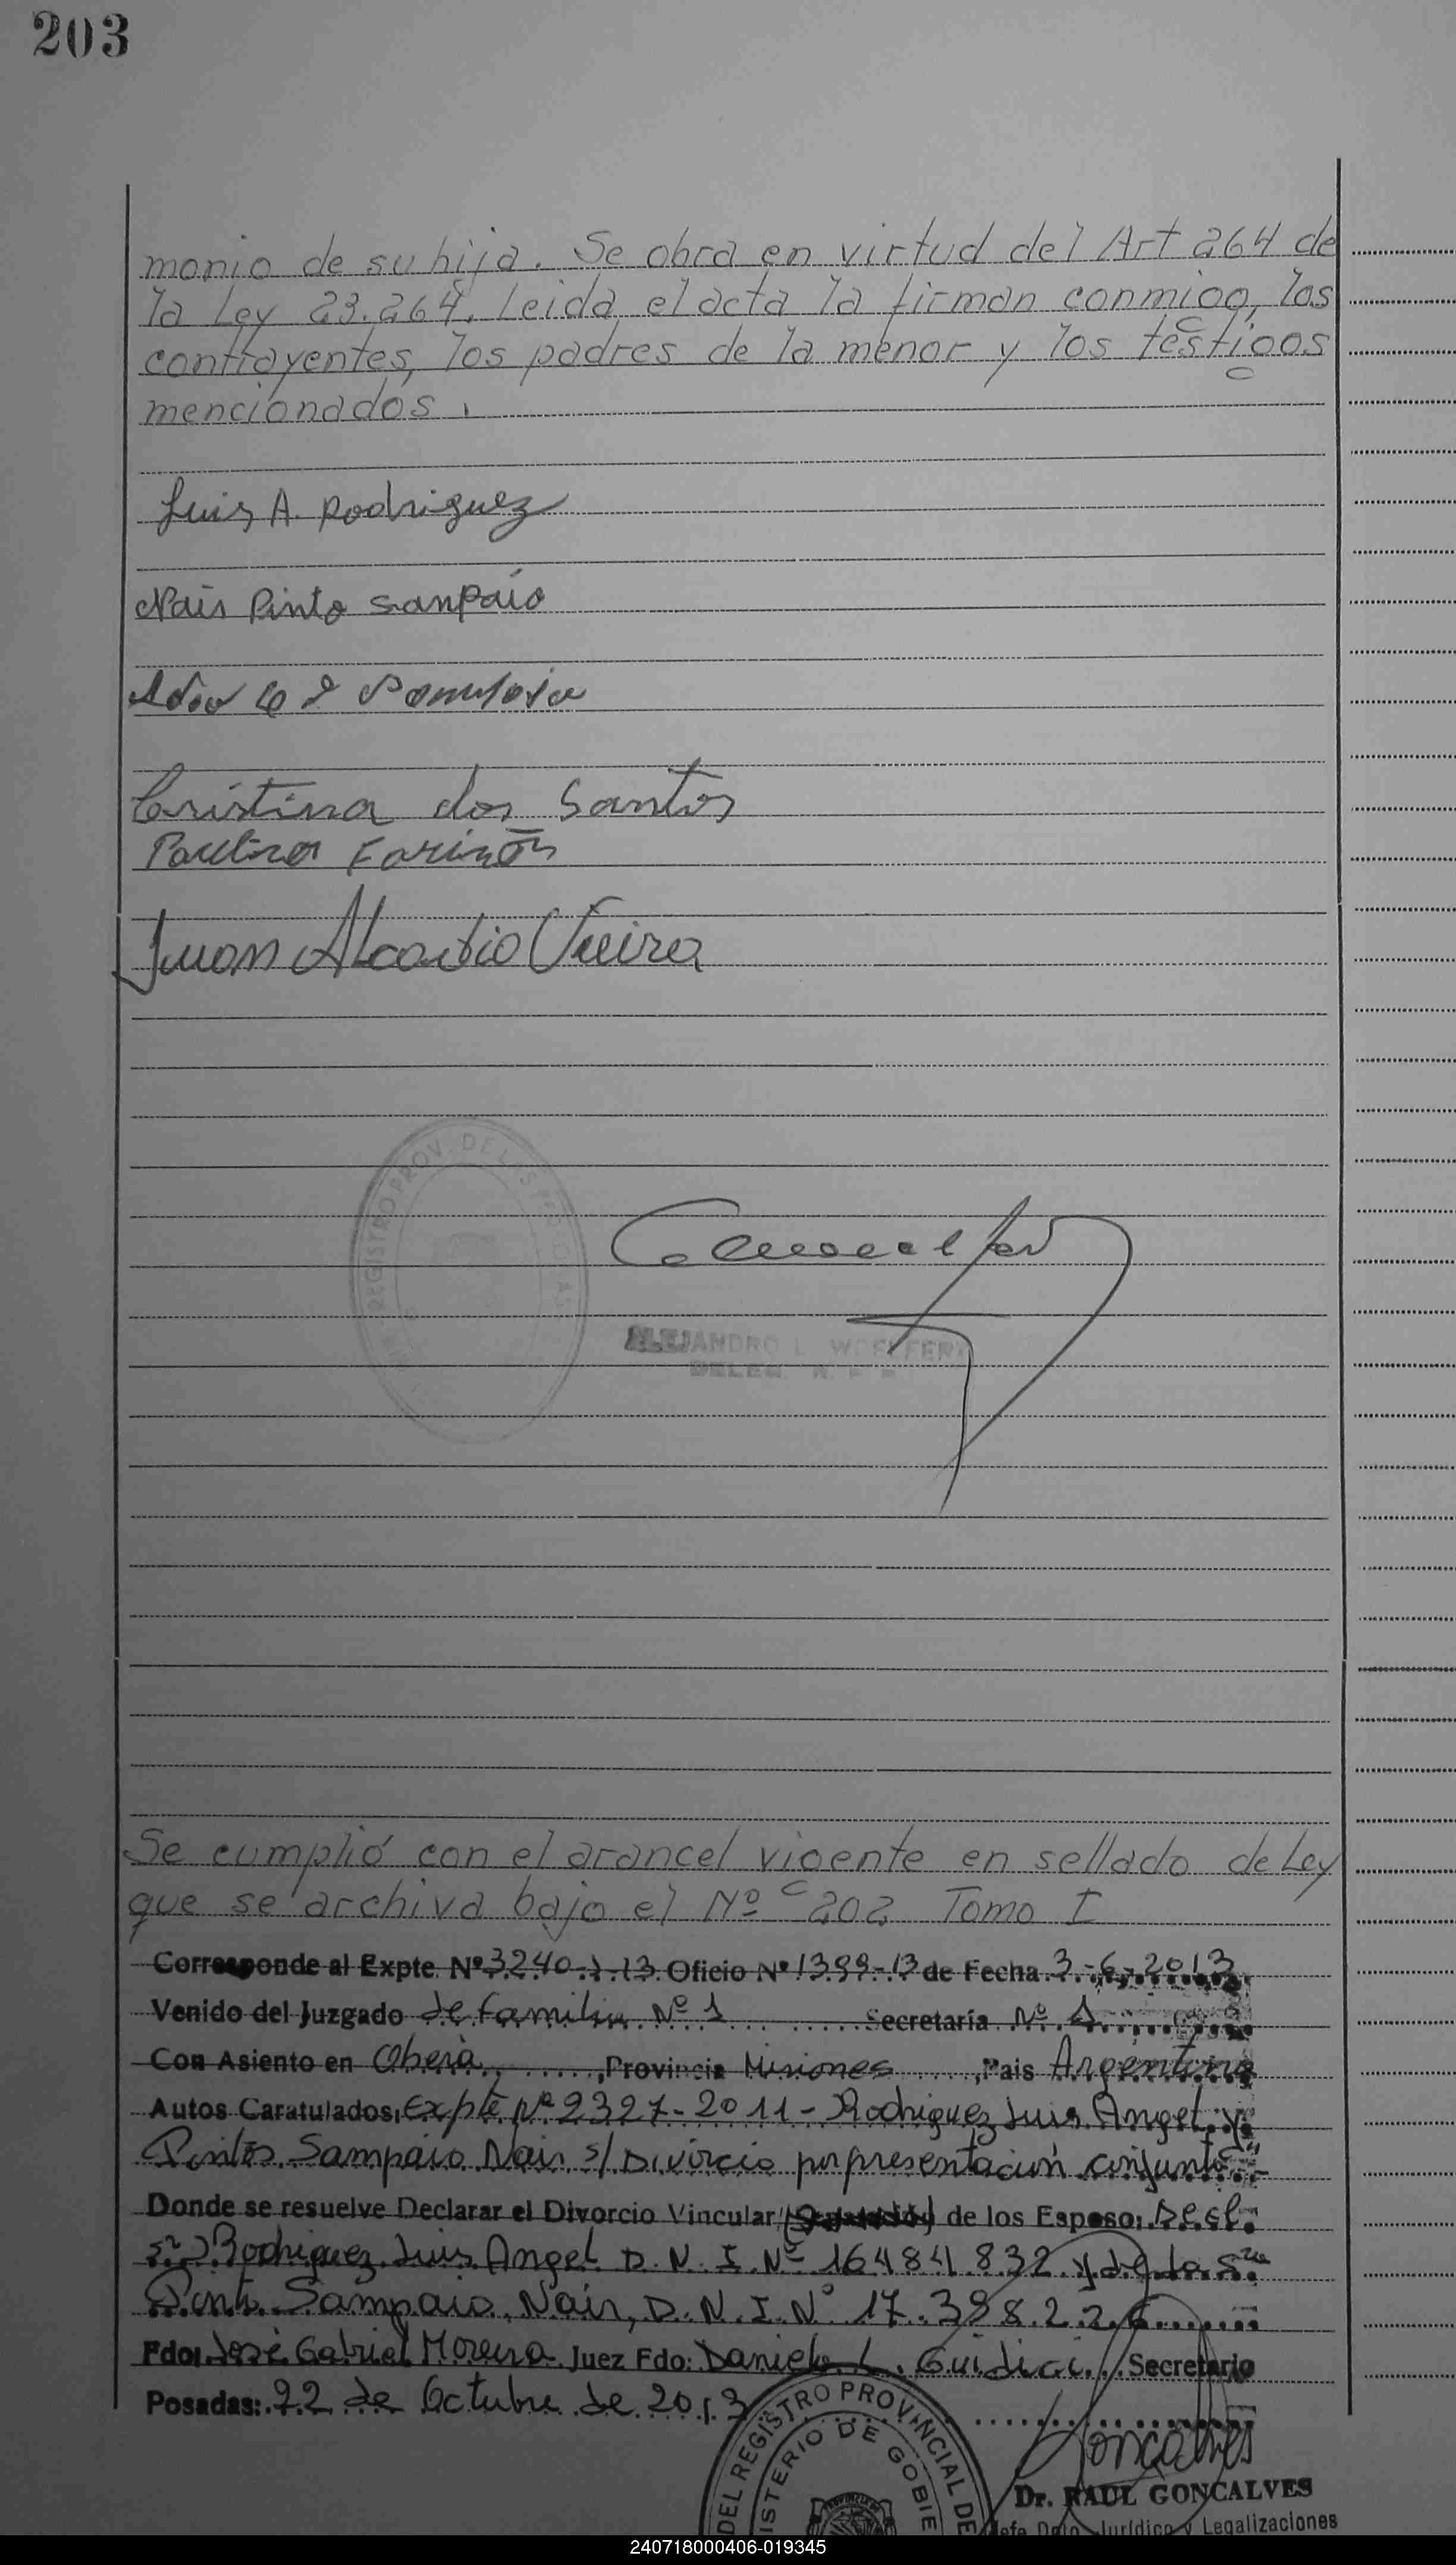 203
monio de su hija. Se obra en virtud del Art 264 de
la Ley 23.264. Leida el acta la firman conmigo, los
contrayentes, los padres de la menor y los testigos
mencionados.
Luis A. Rodriguez
Nair Pinto Sanpaio
Cristina dos Santos
Juan Alcardio Vieira
REGISTRO PROV. DE LAS PERSONAS
ALEJANDRO L. WOELFERT
DELEG. R. P. P.
Se cumplió con el arancel vigente en sellado de Ley
que se archiva bajo el Nº 202 Tomo I
Corresponde al Expte. Nº 3240-J-13 Oficio Nº 1399-13 de Fecha 3-6-2013
Venido del Juzgado de Familia Nº 1 Secretaría Nº 1
Con Asiento en Oberá, Provincia Misiones, Pais Argentina
Autos Caratulados, Expte Nº 2327-2011- Rodriguez Luis Angel y
Pinto Sampaio Nair s/ Divorcio por presentación conjunta"-
Donde se resuelve Declarar el Divorcio Vincular de los Esposo: Del
Sr. Rodriguez Luis Angel D.N.I. Nº 16484.832 y de la Sra
Pinto Sampaio, Nair, D.N.I. Nº 17.398.226
Fdo: José Gabriel Moreira Juez Fdo: Daniela L. Guidici, Secretario
Posadas: 22 de Octubre de 2013
DEL REGISTRO PROVINCIAL DE
ISTERIO DE GOBIE
Goncalves
Dr. RAUL GONCALVES
Jefe Dpto. Jurídico y Legalizaciones
240718000406-019345